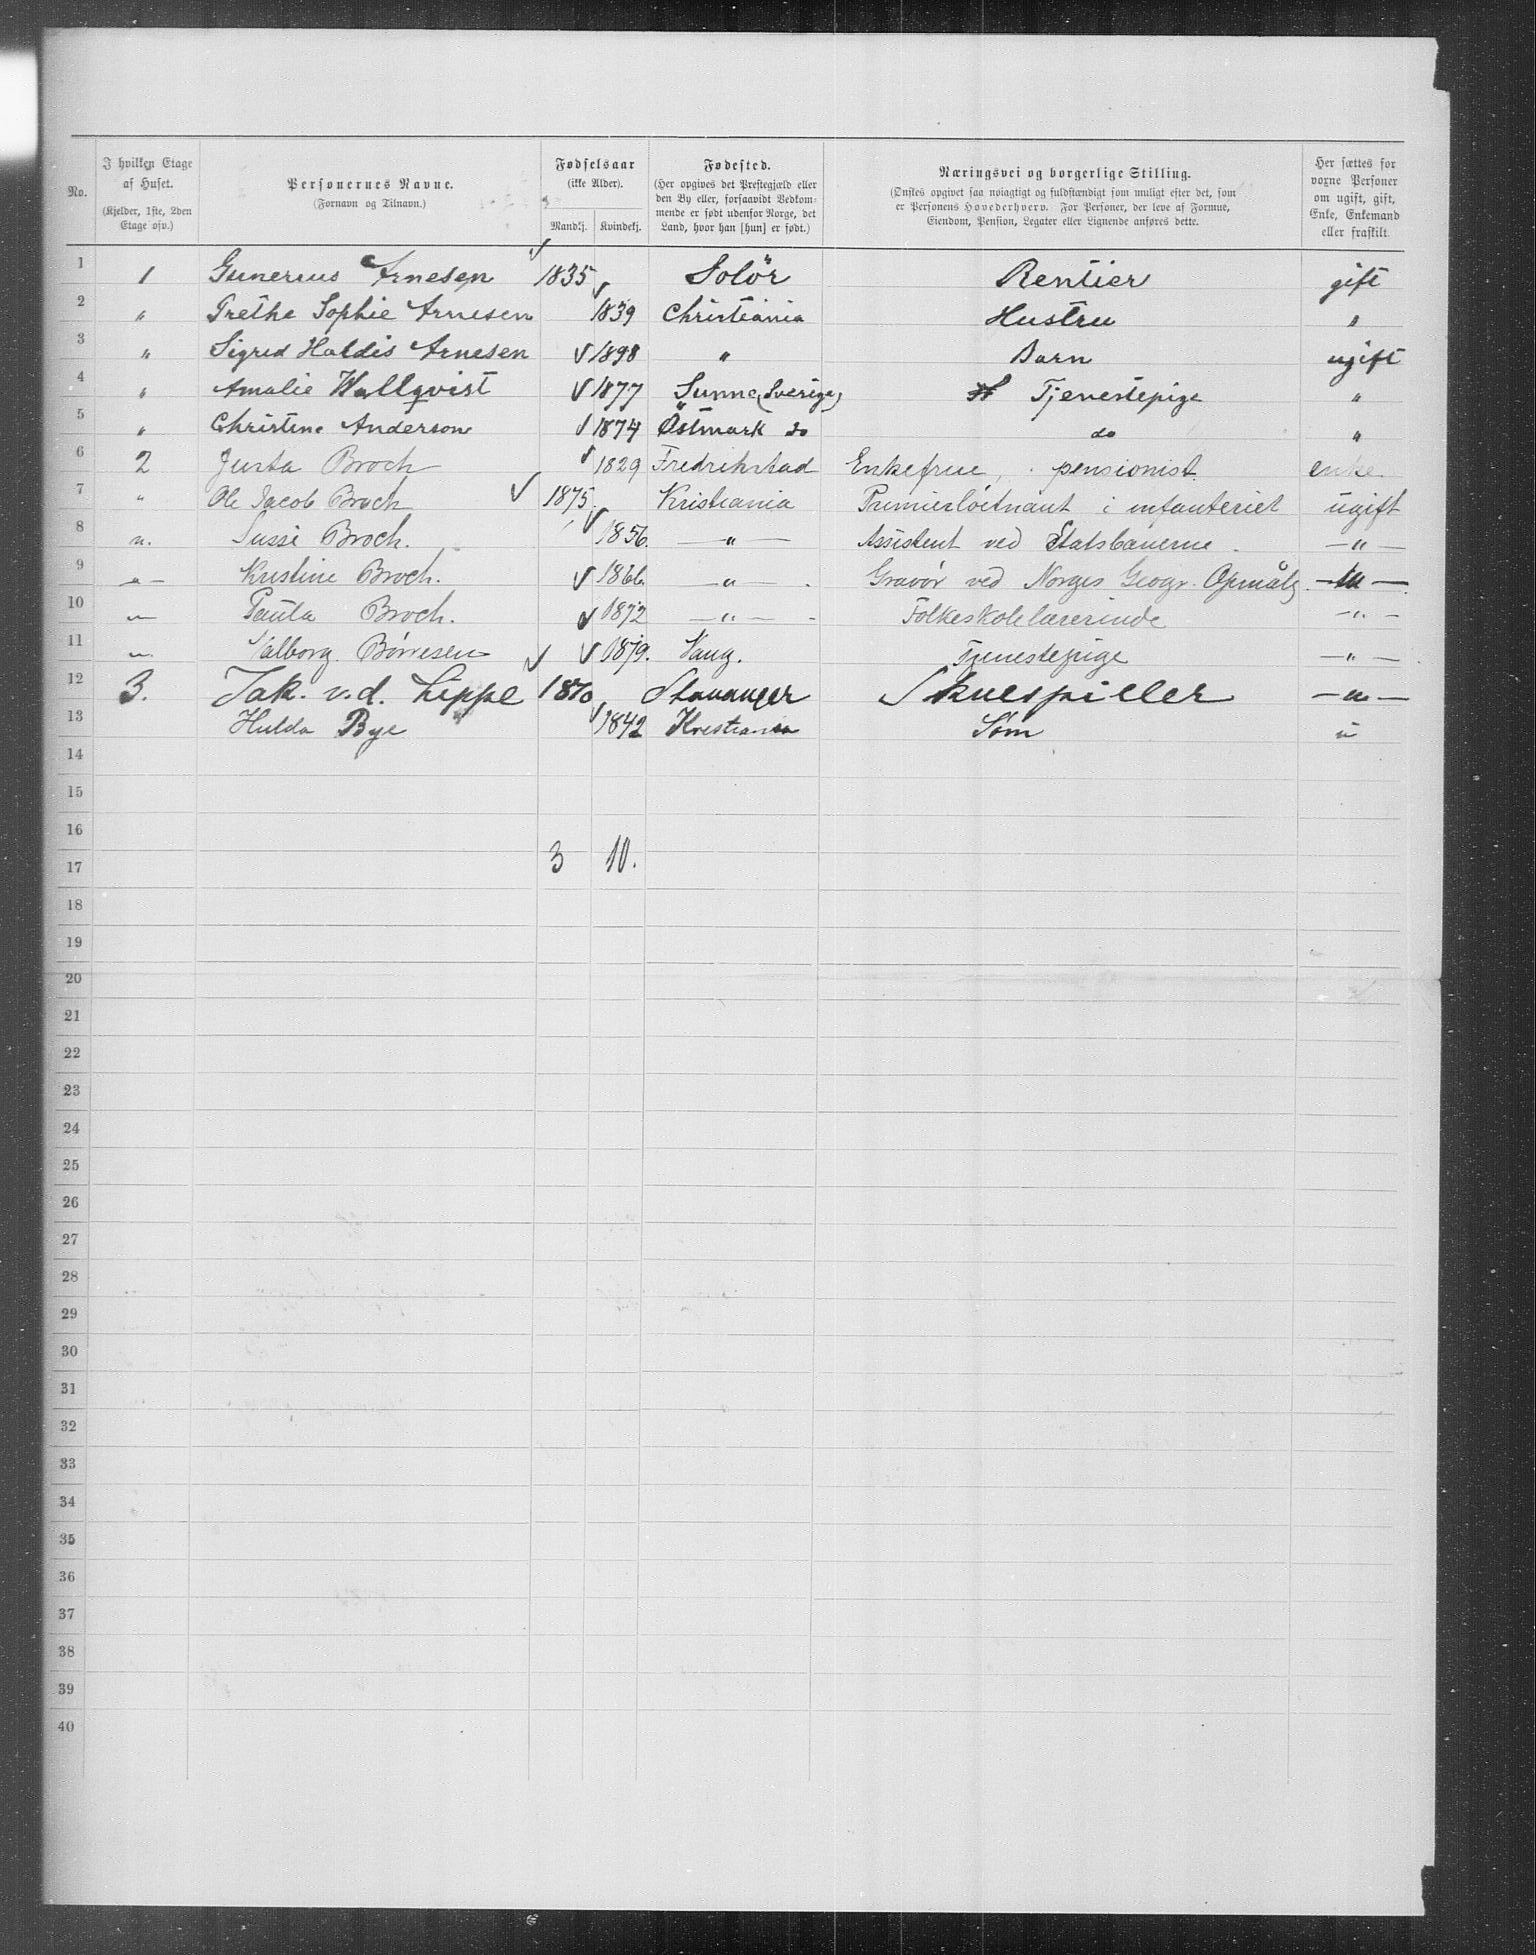 No.
I hvilken Etage af Huset.
(Kjelder, 1ste, 2den Etage osv.)
Personernes Navne.
(Fornavn og Tilnavn.)
Fødselsaar
(ikke Alder).
Mandkj. Kvindekj.
Fødested.
(Her opgives det Prestegjæld eller
den By eller, forsaavidt Vedkom-
mende er født udenfor Norge, det
Land, hvor han [hun] er født.)
Næringsvei og borgerlige Stilling.
(Ønskes opgivet saa nøiagtigt og fuldstændigt som muligt efter det, som
er Personens Hovederhverv. For Personer, der leve af Formue,
Eiendom, Pension, Legater eller Lignende anføres dette.
Her sættes for
voxne Personer
om ugift, gift,
Enke, Enkemand
eller fraskilt.
1 1 Gunerius Arnesen 1835 Solör Rentier gift
2 " Grethe Sophie Arnesen 1839 Christiania Hustru "
3 " Sigrid Haldis Arnesen 1898 " Barn ugift
4 " Amalie Wallqvist 1877 Sunne (Sverige) Tjenestepige "
5 " Christine Anderson 1874 Östmark do do "
6 2 Justa Broch 1829 Fredrikstad Enkefrue, pensionist. enke.
7 " Ole Jacob Broch 1875. Kristiania Premierløitnant i infanteriet ugift
8 ". Sussi Broch. 1856. — " — Assistent ved Statsbanerne. — " —
9 — " — Kristine Broch. 1866. — " — . Gravør ved Norges Geogr. Opmålg. — " —
10 — Paula Broch. 1872 — " — . Folkeskolelærerinde — " —
11 ". Valborg Børresen 1879. Vang. Tjenestepige — " — .
12 3. Jak. v.d. Lippe 1870 Stavanger Skuespiller — " —
13 Hulda Bye 1842 Kristiania Søm "
14
15
16
3 10.
17
18
19
20
21
22
23
24
25
26
27
28
29
30
31
32
33
34
35
36
37
38
39
40